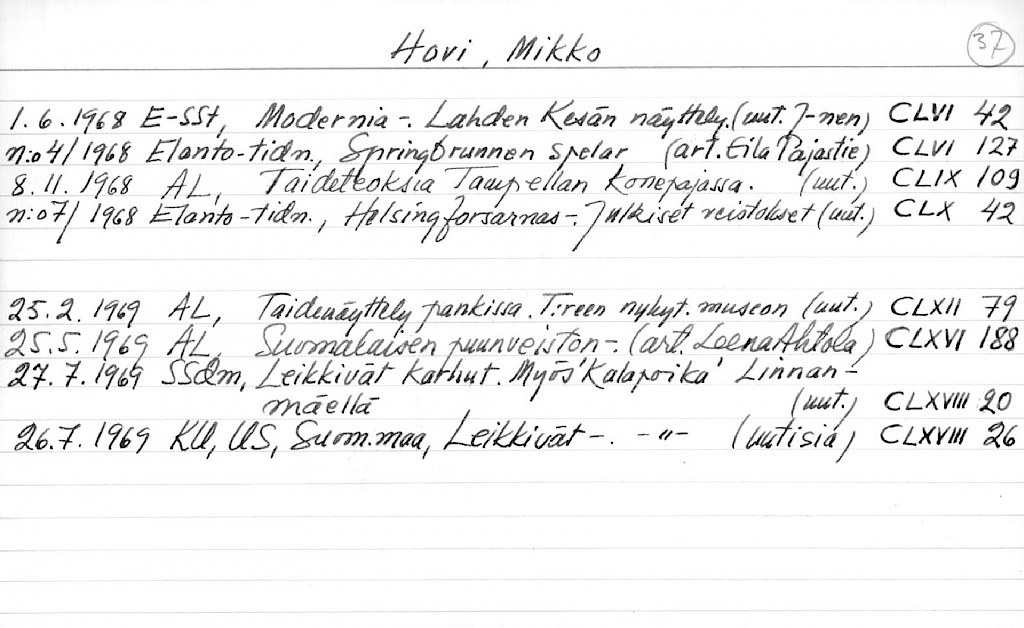 Hovi, Mikko 37
1.6.1968 E-SSt, Modernia -. Lahden Kesän näyttely. (uut. J-nen) CLVI 42
n:o 4/1968 Elanto-tidn., Springbrunnen spelar (art. Eila Pajastie) CLVI 127
8.11.1968 AL, Taideteoksia Tampellan Konepajassa. (uut.) CLIX 109
n:o 7/1968 Elanto-tidn., Helsingforsarnas -. Julkiset veistokset (uut.) CLX 42
25.2.1969 AL, Taidenäyttely pankissa. T:reen nykyt. museon (uut.) CLXII 79
25.5.1969 AL, Suomalaisen puunveiston -. (art. Leena Ahtola) CLXVI 188
27.7.1969 SSdm, Leikkivät Karhut. Myös 'Kalapoika' Linnan-
mäellä (uut.) CLXVIII 20
26.7.1969 KU, US, Suom.maa, Leikkivät -. -"- (uutisia) CLXVIII 26